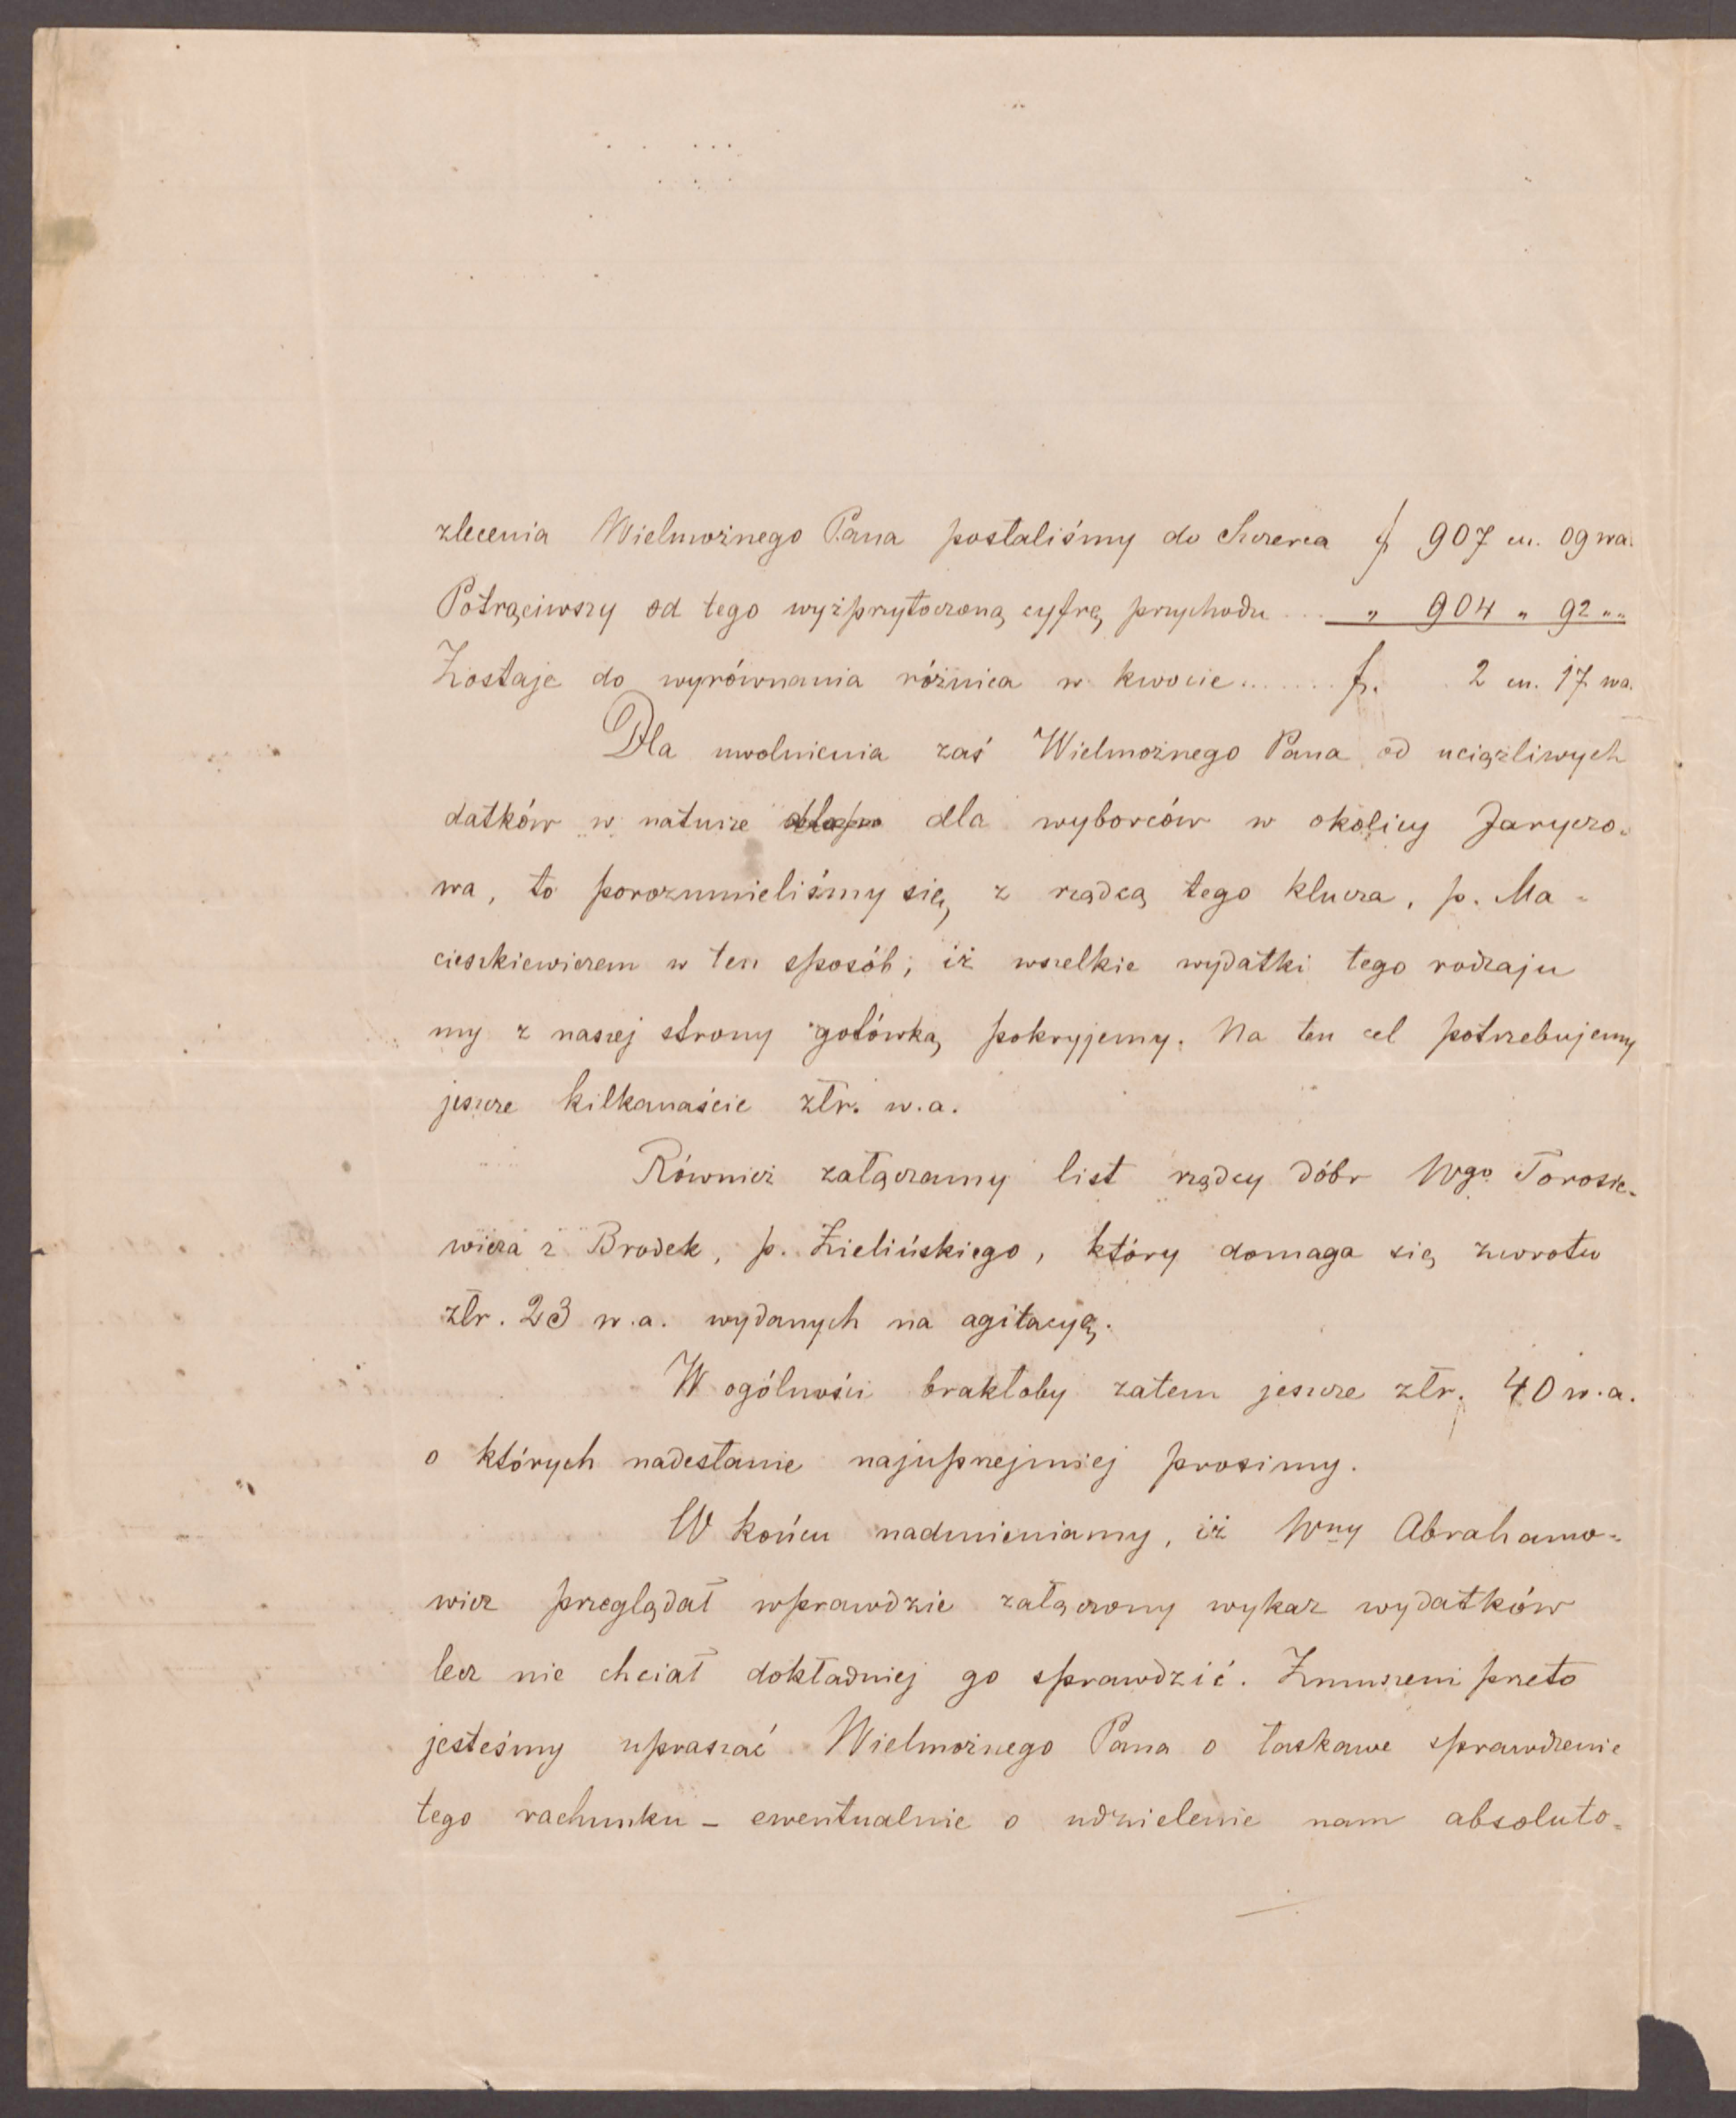 zlecenia Wielmożnego Pana posłaliśmy do Szczerca f 907 cn. 09 wa.
Potrąciwszy od tego wyżprzytoczoną cyfrę przychodu ... „ 904 „ 92 „„
Zostaje do wyrównania różnica w kwocie....... f. 2 cn. 17 wa.
Dla uwolnienia zaś Wielmożnego Pana od uciążliwych
datków w naturze dla wyborców w okolicy Jaryczo-
wa, to porozumieliśmy się z rządcą tego klucza, p. Ma-
cieszkiewiczem w ten sposób; iż wszelkie wydatki tego rodzaju
my z naszej strony gotówką pokryjemy. Na ten cel potrzebujemy
jeszcze kilkanaście złr. w.a.
Również załączamy list rządcy dóbr Wgo Torosie-
wicza z Brodek, p. Zielińskiego, który domaga się zwrotu
złr. 23 w.a. wydanych na agitacyę.
W ogólności brakłoby zatem jeszcze złr. 40 w.a.
o których nadesłanie najuprzejmiej prosimy.
W końcu nadmieniamy, iż Wny Abrahamo-
wicz przeglądał wprawdzie załączony wykaz wydatków
lecz nie chciał dokładniej go sprawdzić. Zmuszeni przeto
jesteśmy upraszać Wielmożnego Pana o łaskawe sprawdzenie
tego rachunku – ewentualnie o udzielenie nam absoluto-